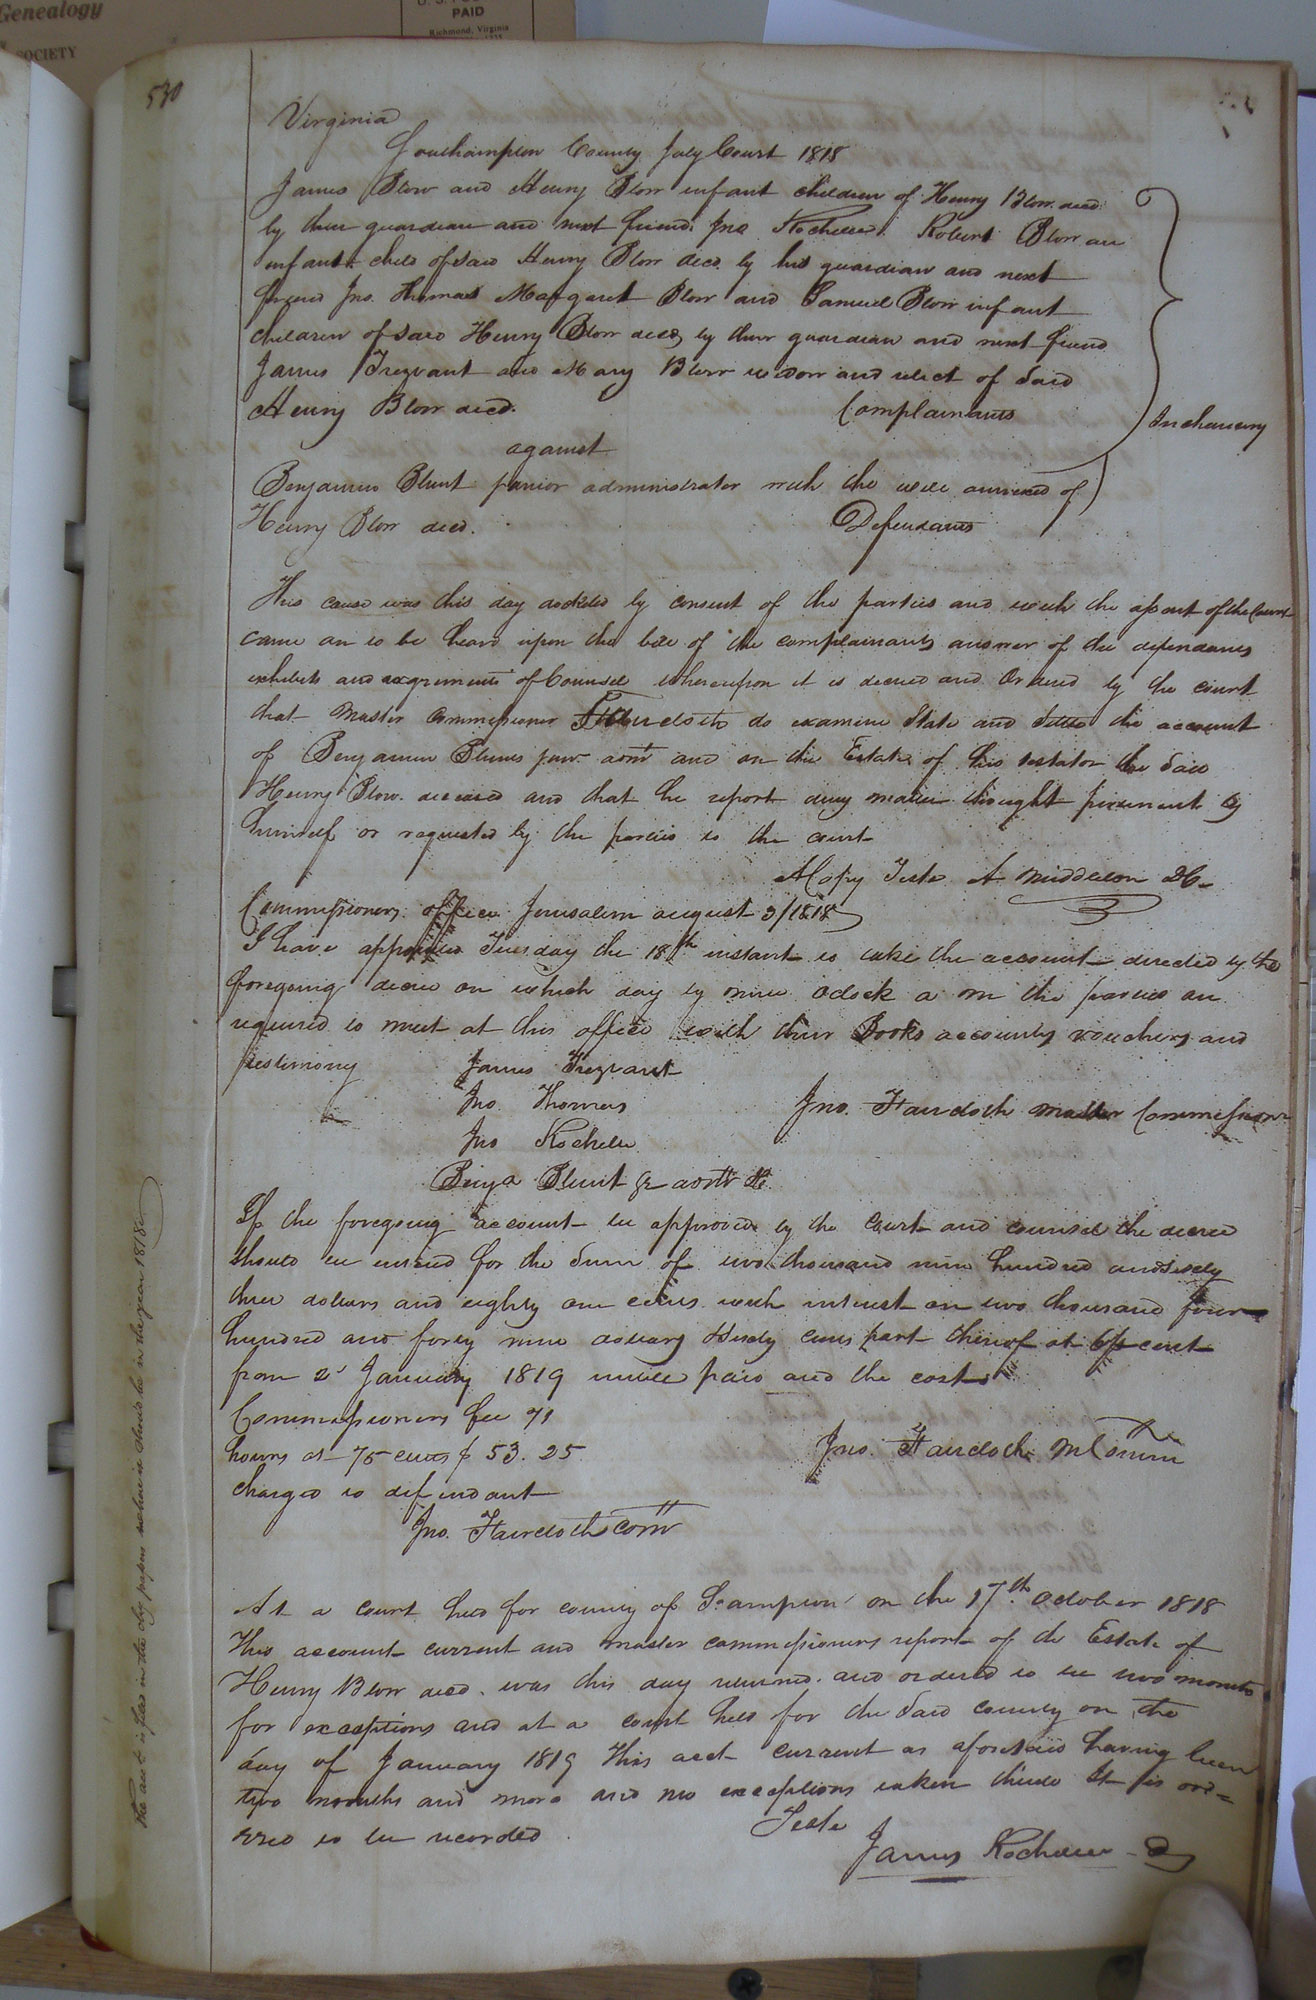 Genealogy
SOCIETY
PAID
Richmond, Virginia
530
Virginia
Southampton County July Court 1818
James Blow and Henry Blow infant children of Henry Blow decd.
by their guardian and next friend Jno Rochelle. Robert Blow an
infant child of said Henry Blow decd by his guardian and next
friend Jno. Thomas Margaret Blow and Samuel Blow infant
children of said Henry Blow decd by their guardian and next friend
James Trezvant and Mary Blow widow and relict of Said
Henry Blow decd. Complainants
In chancery
against
Benjamin Blunt junior administrator with the will annexed of
Henry Blow decd. Defendants
This cause was this day docketed by consent of the parties and with the assent of the Court
came on to be heard upon the bill of the complainants answer of the defendants
exhibits and arguments of Counsel whereupon it is decreed and Ordered by the court
that Master Commissioner Faircloth do examine State and Settle the account
of Benjamin Blunt junr admr and on the Estate of his testator the said
Henry Blow deceased and that he report any matter thought pertinent by
himself or required by the parties to the court
A Copy Teste A Middleton DC
Commissioners office Jerusalem august 3/1818
I have appointed Tuesday the 18th instant to take the account directed by the
foregoing decree on which day by nine oclock a m the parties are
required to meet at this office with their Books accounts vouchers and
testimony James Trezvant
Jno. Thomas Jno. Faircloth master Commissioner
Jno Rochelle
Benja Blunt Jr admr &c
If the foregoing account be approved by the Court and counsel the decree
should be entered for the Sum of two thousand nine hundred and sixty
three dollars and eighty one cents with interest on two thousand four
hundred and forty nine dollars sixty cents part thereof at 6 p cent
from 2d January 1819 untill paid and the costs
Commissioners fee 71
hours at 75 cents $ 53.25 Jno. Faircloth M Comm
charged to defendant
Jno. Faircloth comr
At a court held for county of So.ampton on the 17th October 1818
This account current and master commissioners report of the Estate of
Henry Blow decd. was this day returned and ordered to lie two months
for exceptions and at a court held for the said county on the
day of January 1819 This acct current as aforesaid having lain
two months and more and no exceptions taken thereto It is ord=
ered to be recorded
Teste
James Rochelle
The acct is filed in the ofs papers where it should be in the year 1818